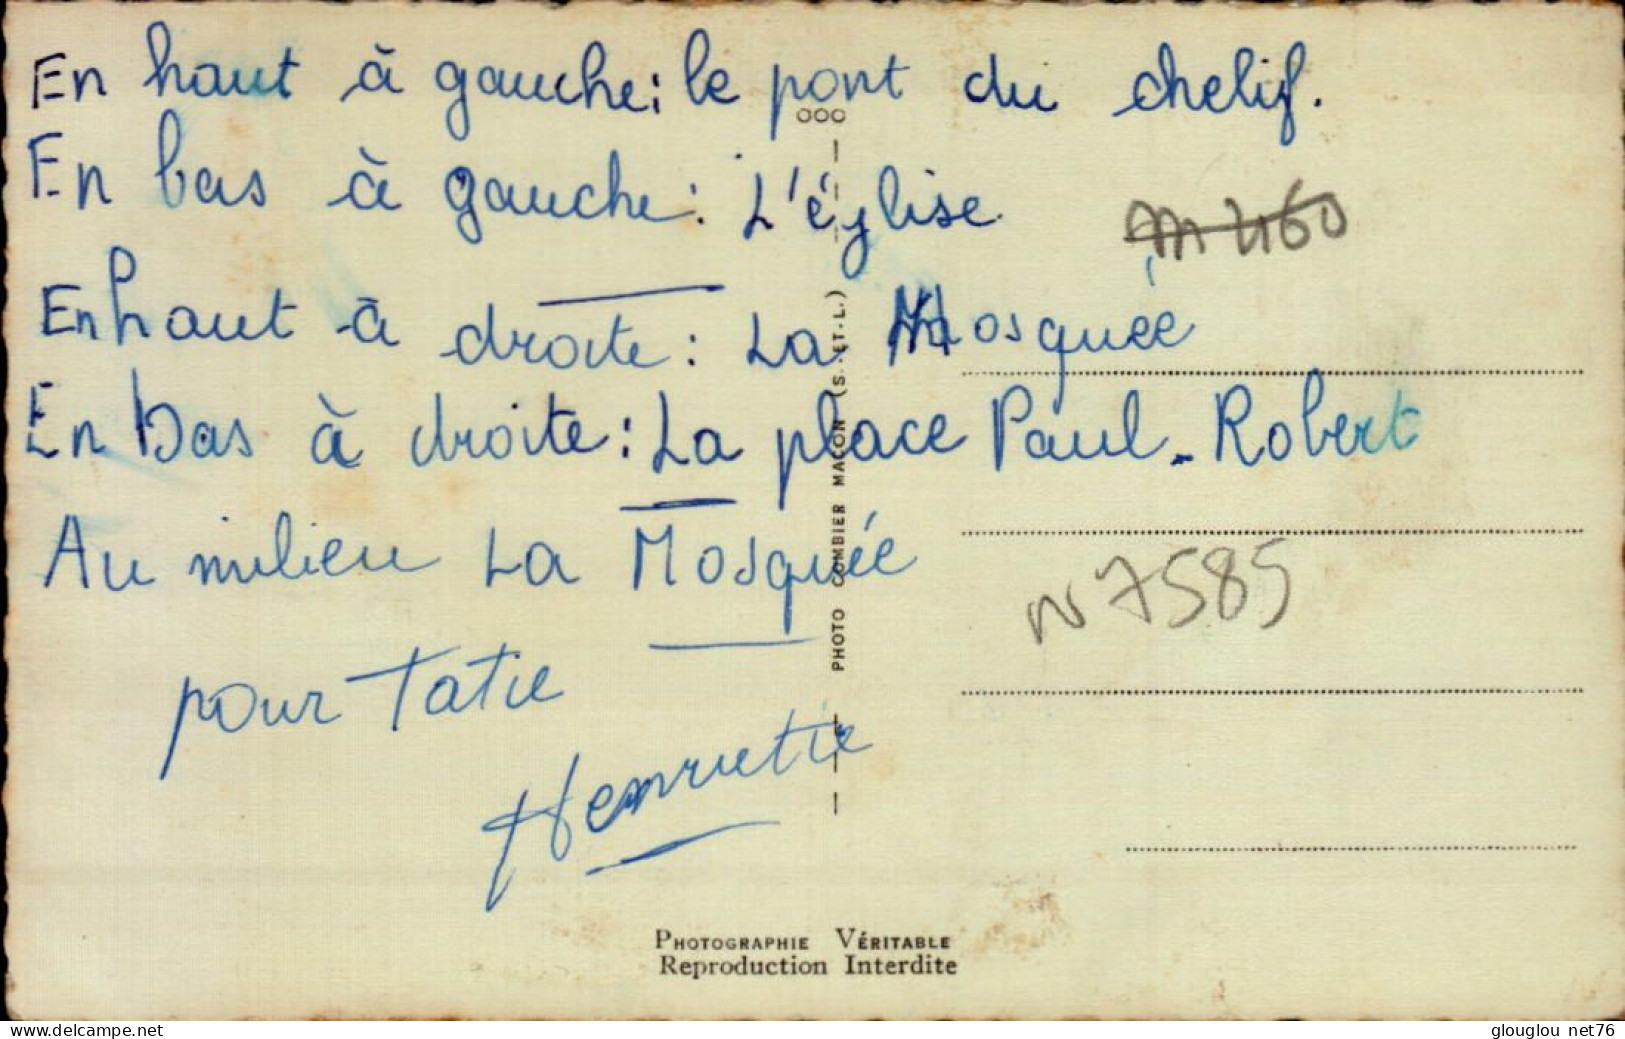 En haut à gauche : le pont du chelif.
En bas à gauche : L'église.
En haut à droite : La Mosquée
En bas à droite : La place Paul-Robert
Au milieu La Mosquée
pour Tatie
Henriette
N 7585
PHOTO COMBIER MACON (S.-ET-L.)
PHOTOGRAPHIE VÉRITABLE
Reproduction Interdite
www.delcampe.net
glouglou net76